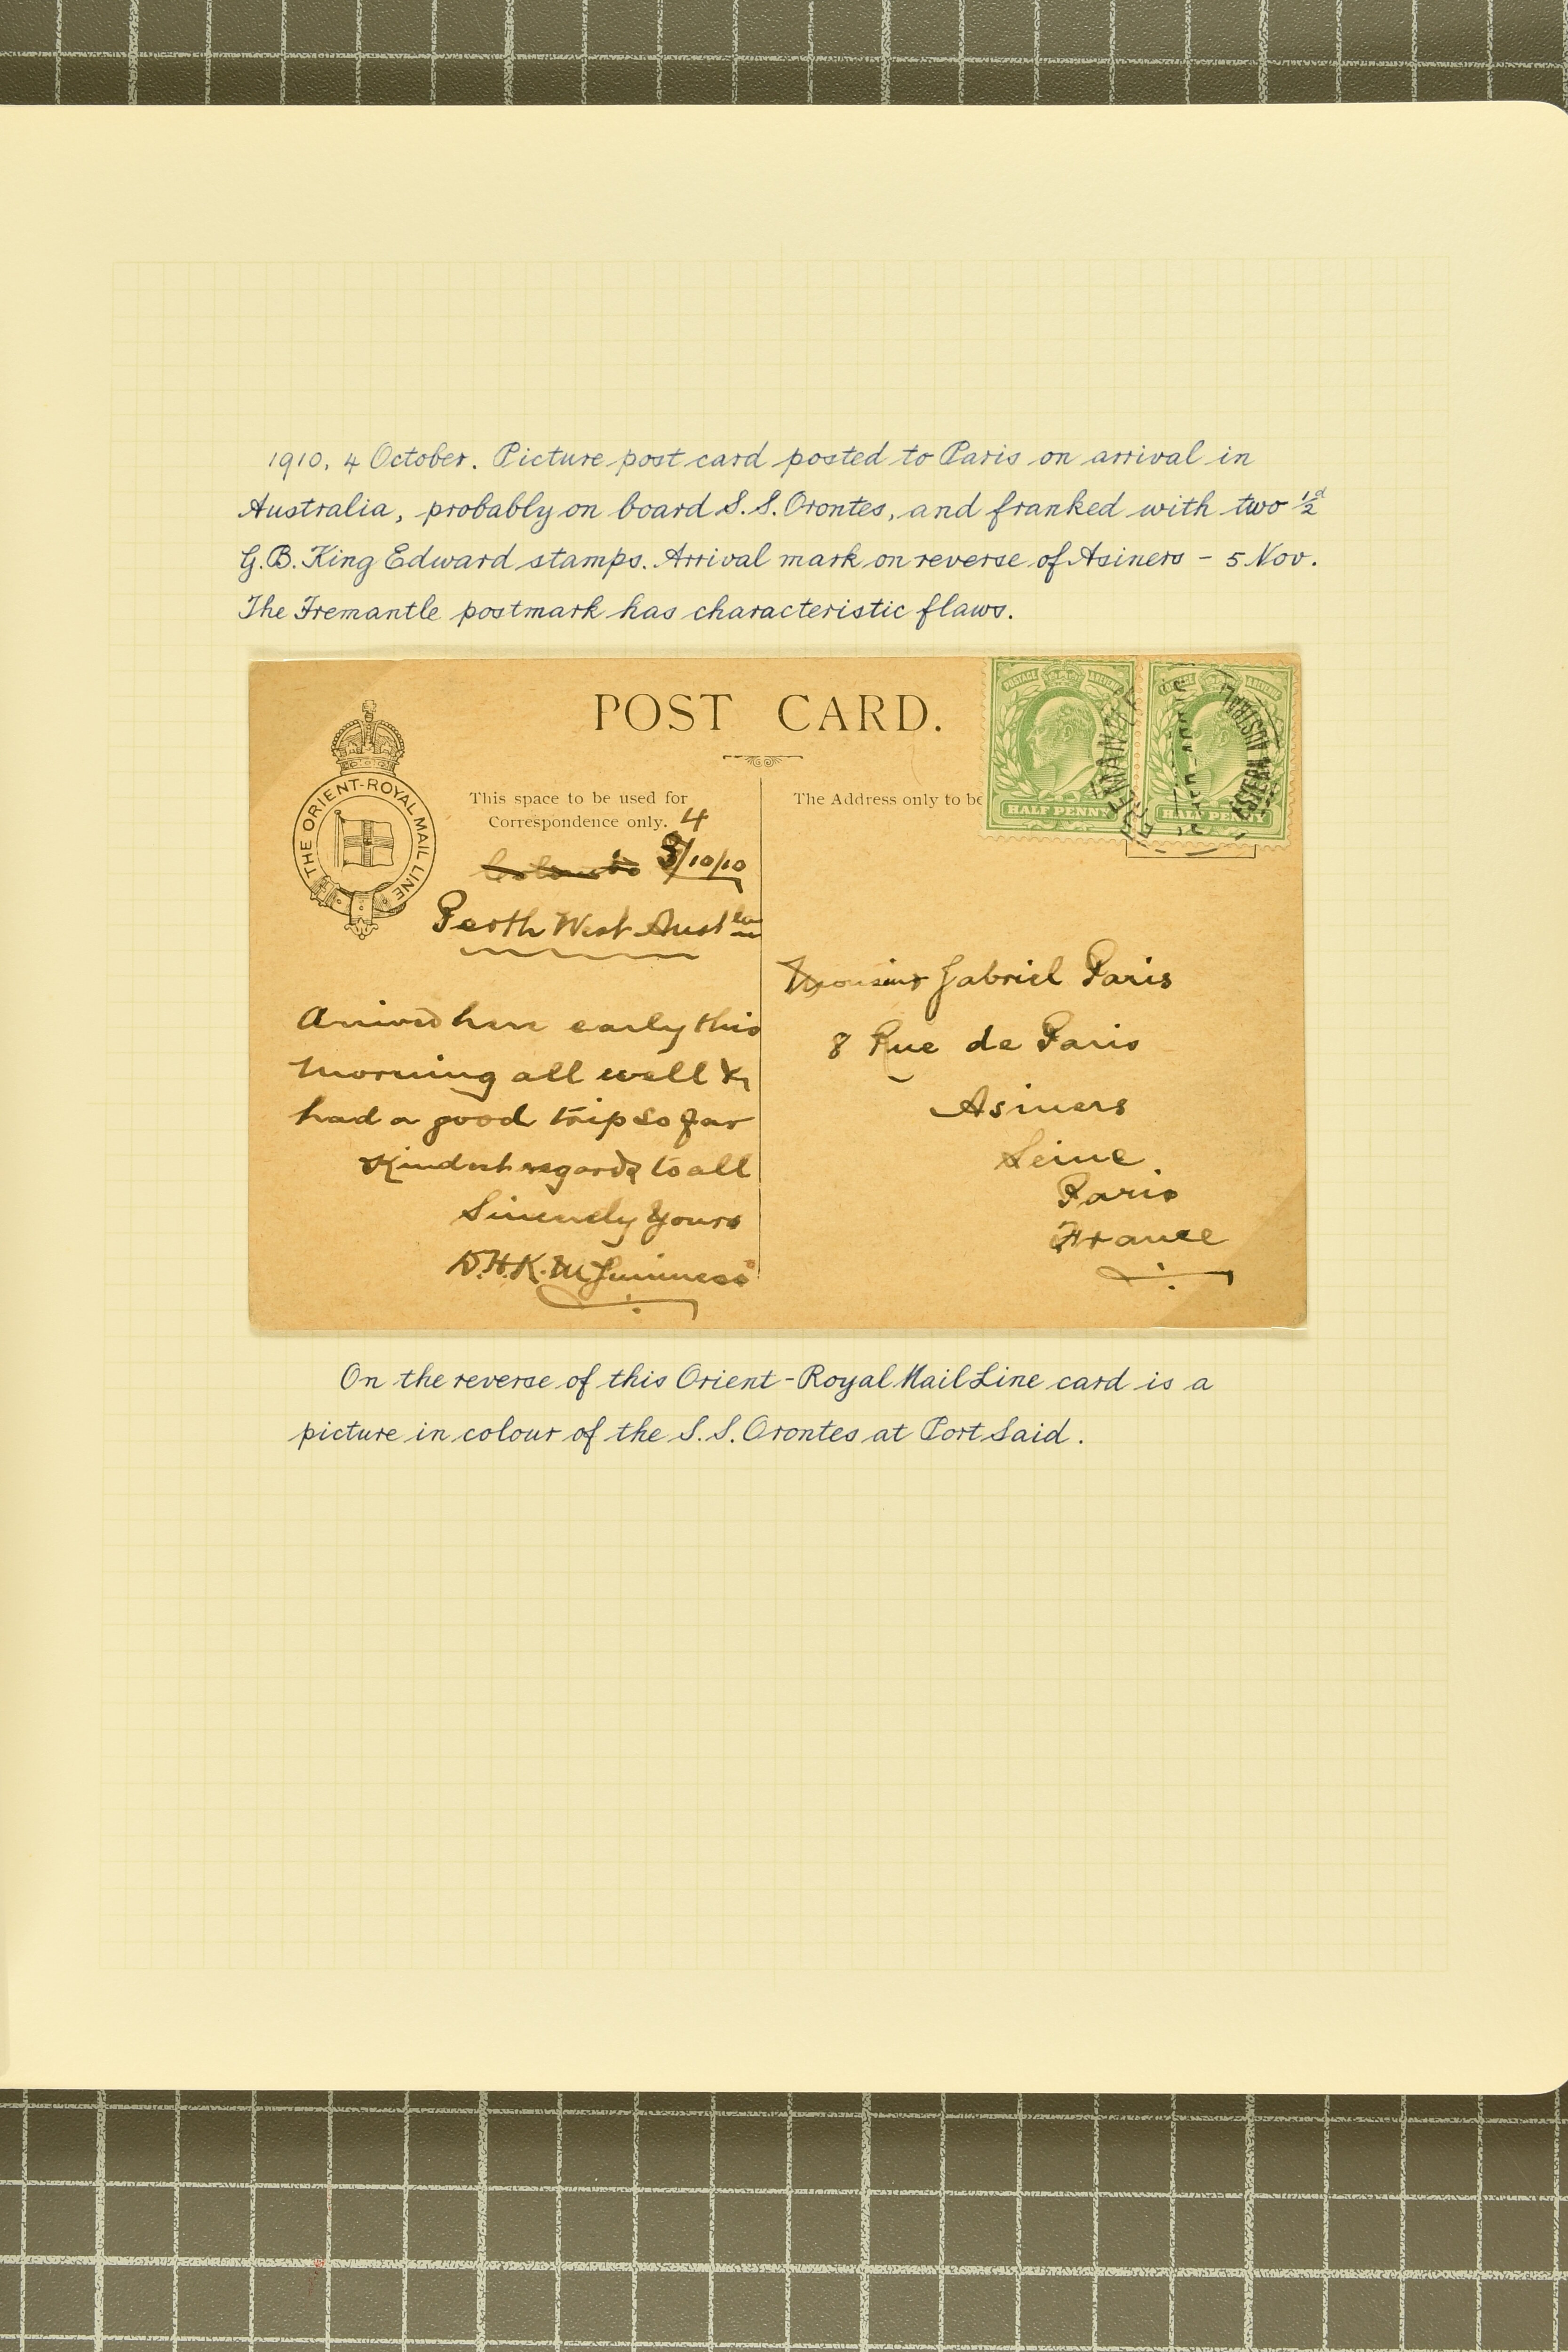 1910, 4 October. Picture post card posted to Paris on arrival in
Australia, probably on board S.S. Orontes, and franked with two ½d
G.B. King Edward stamps. Arrival mark on reverse of Asiners - 5 Nov.
The Fremantle postmark has characteristic flaws.
POST CARD.
THE ORIENT-ROYAL MAIL LINE
This space to be used for
Correspondence only.
4
Colombo 3/10/10
Perth West Austlia
Arrived here early this
morning all well &
had a good trip so far
Kindest regards to all
Sincerely Yours
D.H.K. McGuinness
The Address only to be
POSTAGE REVENUE
HALF PENNY
POSTAGE REVENUE
HALF PENNY
FREMANTLE
WESTERN AUSTRALIA
Monsieur Gabriel Paris
8 Rue de Paris
Asiners
Seine.
Paris
France
On the reverse of this Orient-Royal Mail Line card is a
picture in colour of the S.S. Orontes at Port Said.